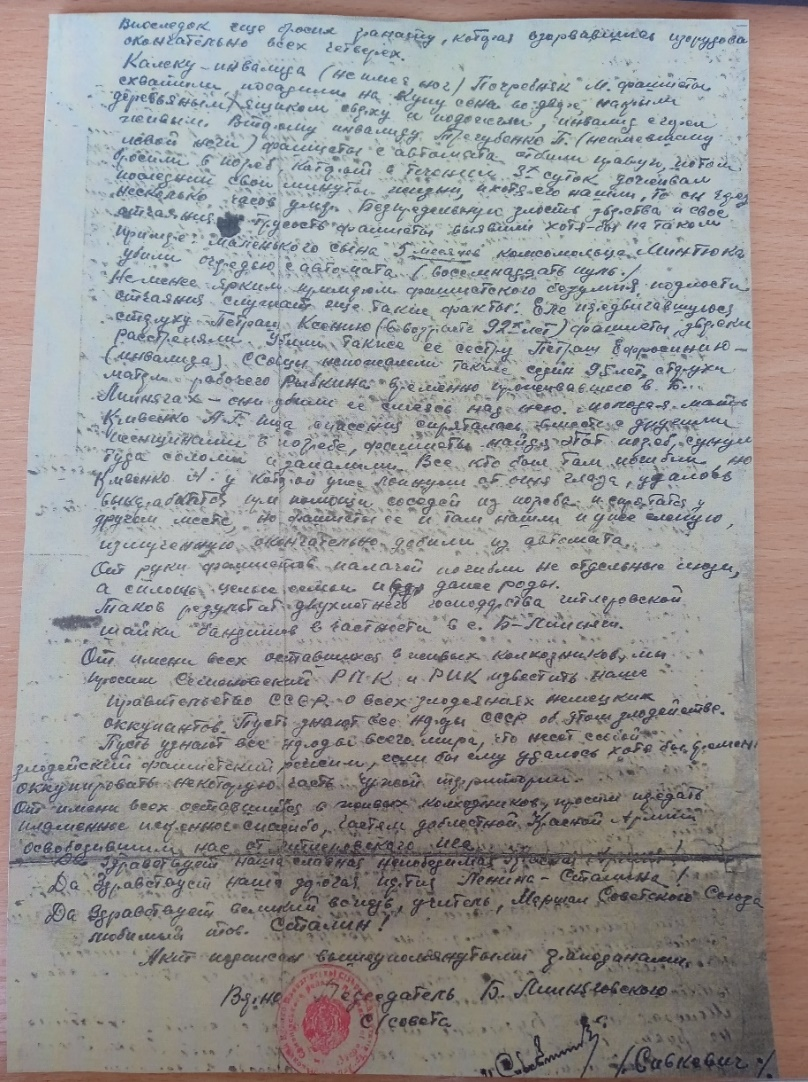 Впоследок еще бросил гранату, которая взорвавшись изуродовала
окончательно всех четверех.
Калеку-инвалида (не имея ног) Погребняк М. фашисты
схватили посадили на кучу сена во дворе, накрыли
деревьяным ящиком сверху и подожгли, инвалид сгорел
живым. Второму инвалиду Трегубенко П. (не имевшему
левой ноги) фашисты с автомата отбили правую, потом
бросили в погреб, который в течении 3х суток доживал
последний свои минуты жизни, и хотя его нашли, то он через
несколько часов умер. Беспредельную злость зверства и свое
отчаяние трусость фашисты выявили хотя-бы на таком
примере: маленького сына 5 месяцев комсомольца Минтюка
убили очередью с автомата (восемнадцать пуль.)
Не менее ярким примером фашистского безумия, подлости
отчаяния служат еще такие факты: Еле передвигавшуюся
старуху Петраш Ксению (в возрасте 92х лет) фашисты зверски
расстреляли. Убили также ее сестру Петраш Ефросинию-
(инвалида). ССовцы непожалели также седин 95 лет, старухи
матери рабочего Рыбкина временно проживавшего в Б.-
Липнягах - они убили ее смеясь над нею. молодая мать
Кривенко А.Г. ища спасения спряталась вместе с другими
женщинами в погребе, фашисты найдя этот погреб, сунули
туда соломы и запалили. Все кто был там погибли, но
Кривенко А. у которой уже лопнули от огня глаза, удалось
выкарабкатся при помощи соседей из погреба и спрятатся у
другом месте, но фашисты ее и там нашли и уже слепую,
измученную окончательно добили из автомата.
От руки фашистов палачей погибли не отдельные люди,
а сплошь целые семьи и даже роды.
Таков результат двухлетнего господства гитлеровской
шайки бандитов в частности в с. Б-Липняги.
От имени всех оставшихся в живых колхозников, мы
просим Семеновский РПК и РИК известить наше
правительство СССР о всех злодеяниях немецких
оккупантов. Пусть знают все народы СССР об этом злодействе.
Пусть узнают все народы всего мира, что несет собой
злодейский фашистский режим, если бы ему удалось хотя бы временно
оккупировать некоторую часть чужой территории.
От имени всех оставшихся в живых колхозников, просим передать
пламенное искренное спасибо, частям доблестной Красной Армии
освободившим нас от гитлеровского ига.
Да здравствует наша славная непобедимая Красная Армия!
Да здравствует наша дорогая партия Ленина-Сталина!
Да Здравствует великий вождь, учитель, Маршал Советского Союза
любимый тов. Сталин!
Акт подписан вышеупомянутыми гражданами.
Верно Председатель Б. Липняговского
С/совета
/Савкевич/.